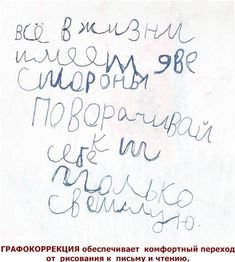 всё в жизни
имеет две
стороны
поворачивай
к
себе т
только
светлую.
ГРАФОКОРРЕКЦИЯ обеспечивает комфортный переход
от рисования к письму и чтению.